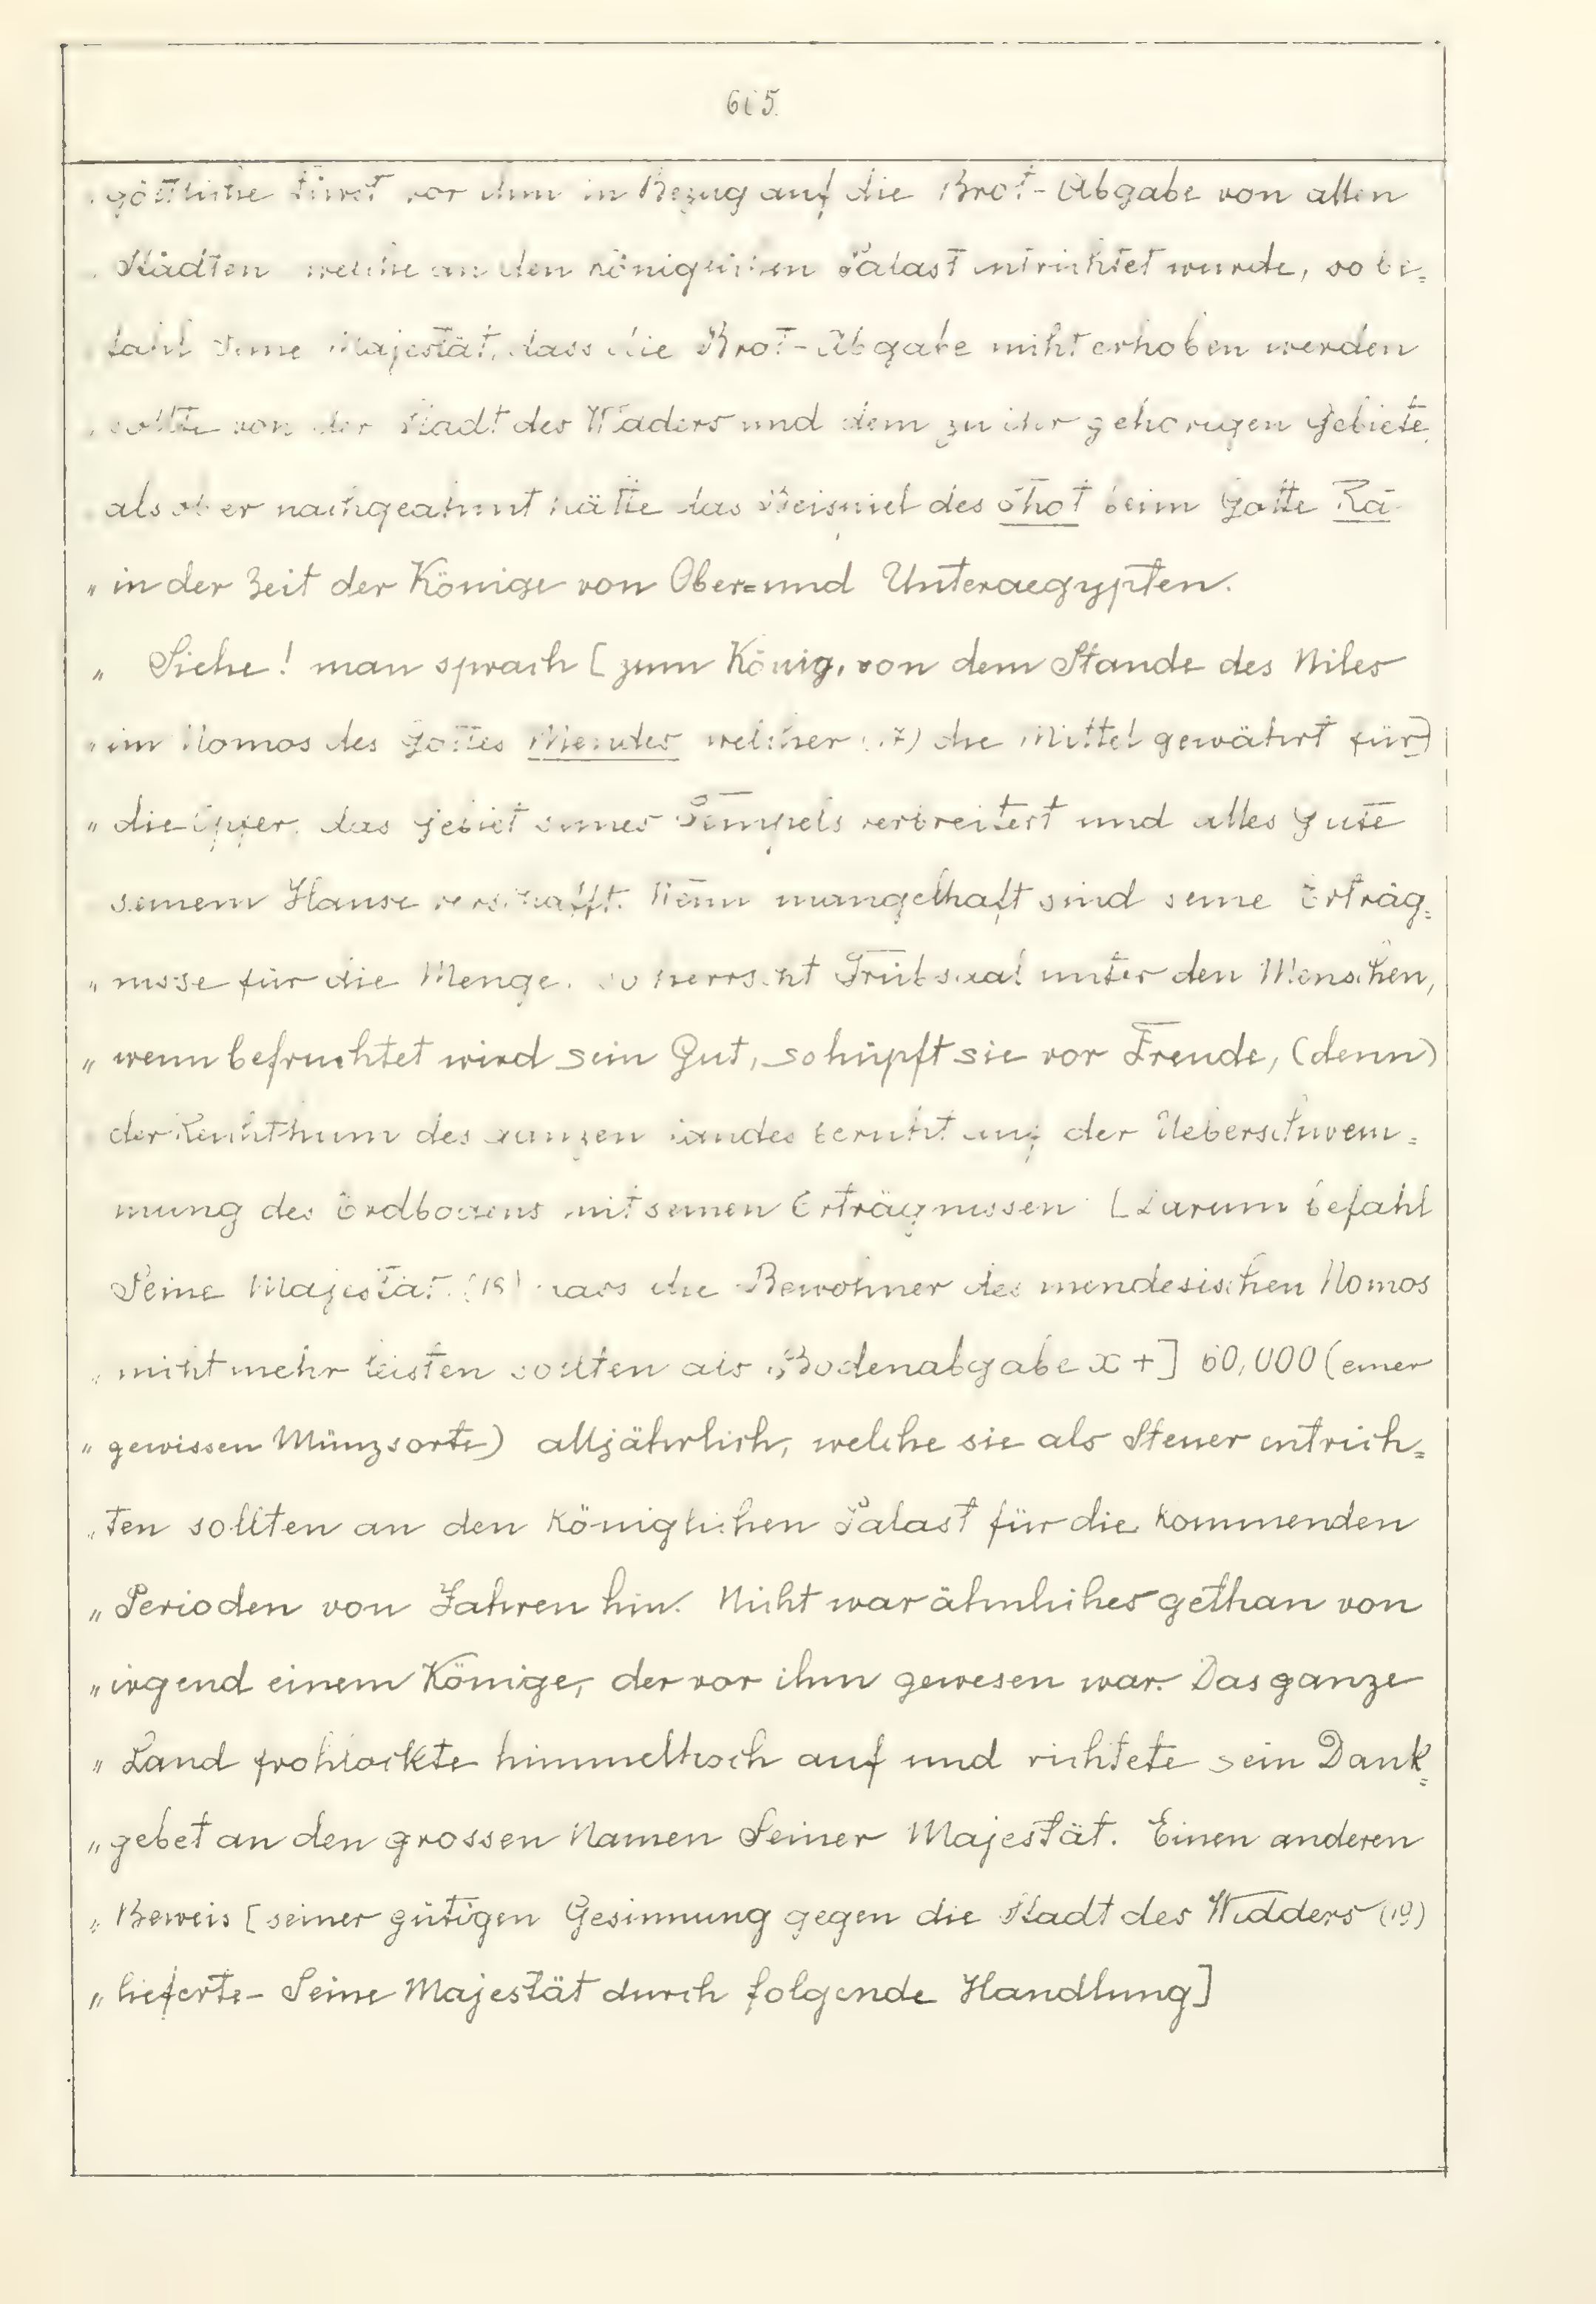 615.
göttliche Fürst vor ihm in Bezug auf die Brot-Abgabe von allen
Städten welche an den königlichen Palast entrichtet wurde, so be=
fahl Seine Majestät, dass die Brot-Abgabe nicht erhoben werden
„ sollte von der Stadt des Widders und dem zu ihr gehörigen Gebiete,
als ob er nachgeahmt hätte das Beispiel des Thot beim Gotte Rā
„ in der Zeit der Könige von Ober= und Unteraegypten.
„ Siehe! man sprach [zum König, von dem Stande des Niles
„ im Nomos des Gottes Mendes welcher (17) die Mittel gewährt für]
„ die Opfer, das Gebiet seines Tempels verbreitert und alles Gute
seinem Hause verschafft. Wenn mangelhaft sind seine Erträg=
„ nisse für die Menge, so herrscht Trübsaal unter den Menschen,
„ wenn befruchtet wird sein Gut, so hüpft sie vor Freude, (denn)
der Reichthum des ganzen Landes beruht auf der Ueberschwem=
mung des Erdbodens mit seinen Erträgnissen [Darum befahl
Seine Majestät (18) dass die Bewohner des mendesischen Nomos
„ nicht mehr leisten sollten als Bodenabgabe x+] 60,000 (einer
„ gewissen Münzsorte) alljährlich, welche sie als Steuer entrich=
„ ten sollten an den Königlichen Palast für die kommenden
„ Perioden von Jahren hin. Nicht war ähnliches gethan von
„ irgend einem Könige, der vor ihm gewesen war. Das ganze
„ Land frohlockte himmelhoch auf und richtete sein Dank=
„ gebet an den grossen Namen Seiner Majestät. Einen anderen
„ Beweis [seiner gütigen Gesinnung gegen die Stadt des Widders (19)
„ lieferte Seine Majestät durch folgende Handlung]